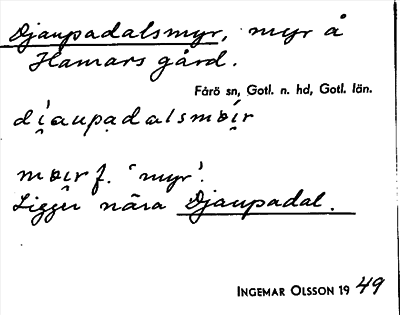 Djaupadalsmyr, myr å
Hamars gård.
Fårö sn, Gotl. n. hd, Gotl. län.
di̯aupadalsmɒi̯r
mɒi̯r f. 'myr'.
Ligger nära Djaupadal.
INGEMAR OLSSON 1949